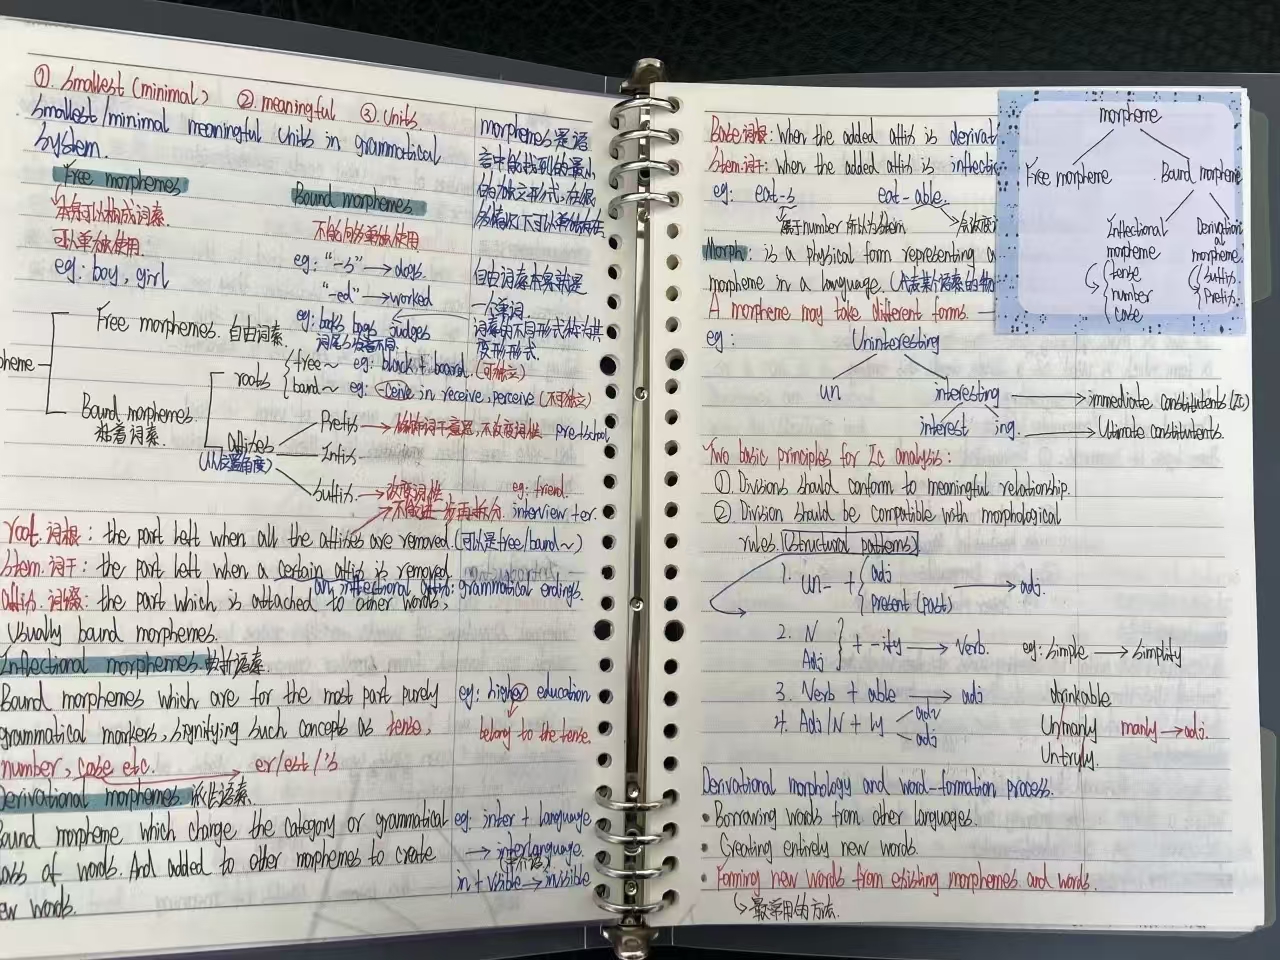 ① Smallest (minimal) ② meaningful ③ Units.
Smallest/minimal meaningful Units in grammatical
System.
Free morphemes
可以单独使用.
eg: boy, girl
Bound morphemes
不能够单独使用
eg: "-s" → dogs
"-ed" → worked
eg: books bags judges
morphemes是语
言中能找到的最小
自由词素本身就是
一个单词
变形形式.
pheme
Free morphemes. 自由词素.
Bound morphemes.
粘着词素.
roots
free~ eg: black + board. (可独立)
band~ eg: -ceive in receive, perceive (不可独立)
affixes
Prefix → 改变词性 preschool
Infix
Suffix → 改变词性 eg: friend.
不能进一步再拆分. interview ter.
root. 词根: the part left when all the affixes are removed. (可以是free/band~)
Stem. 词干: the part left when a certain affix is removed
any inflectional affix: grammatical endings.
affix. 词缀: the part which is attached to other words,
Usually bound morphemes.
Inflectional morphemes. 屈折语素
Bound morphemes which are for the most part purely
grammatical markers, signifying such concepts as tense,
number, case etc. → er/est/'s
eg: higher education
belong to the tense.
Derivational morphemes. 派生语素.
Bound morpheme which change the category or grammatical
lass of words. And added to other morphemes to create
ew words.
eg: inter + language
→ interlanguage.
in + visible → invisible
Base词根: When the added affix is derivat
Stem词干: when the added affix is inflectio
eg: eat-s eat-able.
属于number 所以为stem.
Morph: is a physical form representing a
morpheme in a language.
A morpheme may take different forms.
eg: Uninteresting
un interesting → immediate constitutents (IC)
interest ing. → Ultimate constitutents.
Two basic principles for Ic analysis:
① Divisions should conform to meaningful relationship.
② Division should be compatible with morphological
rules. [Structural patterns]
1. un- + { adj
present (past) → adj.
2. N
Adj } + -ify → Verb. eg: simple → simplify
3. Verb + able → adj drinkable
4. Adj/N + ly adv
adj
Unmanly manly → adj.
Untruly.
Derivational morphology and word-formation process.
• Borrowing words from other languages.
• Creating entirely new words.
• Forming new words from existing morphemes and words.
↳ 最常用的方法.
morpheme
Free morpheme Bound morpheme
Inflectional
morpheme
tense
number
case
Derivation
al
morpheme.
suffix.
Prefix.